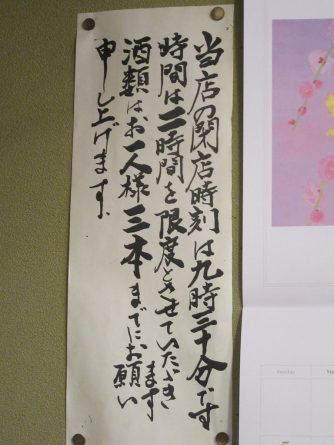 当店の閉店時刻は九時三十分です
時間は二時間を限度とさせていただきます
酒類はお一人様三本までにお願い
申し上げます、
Sunday